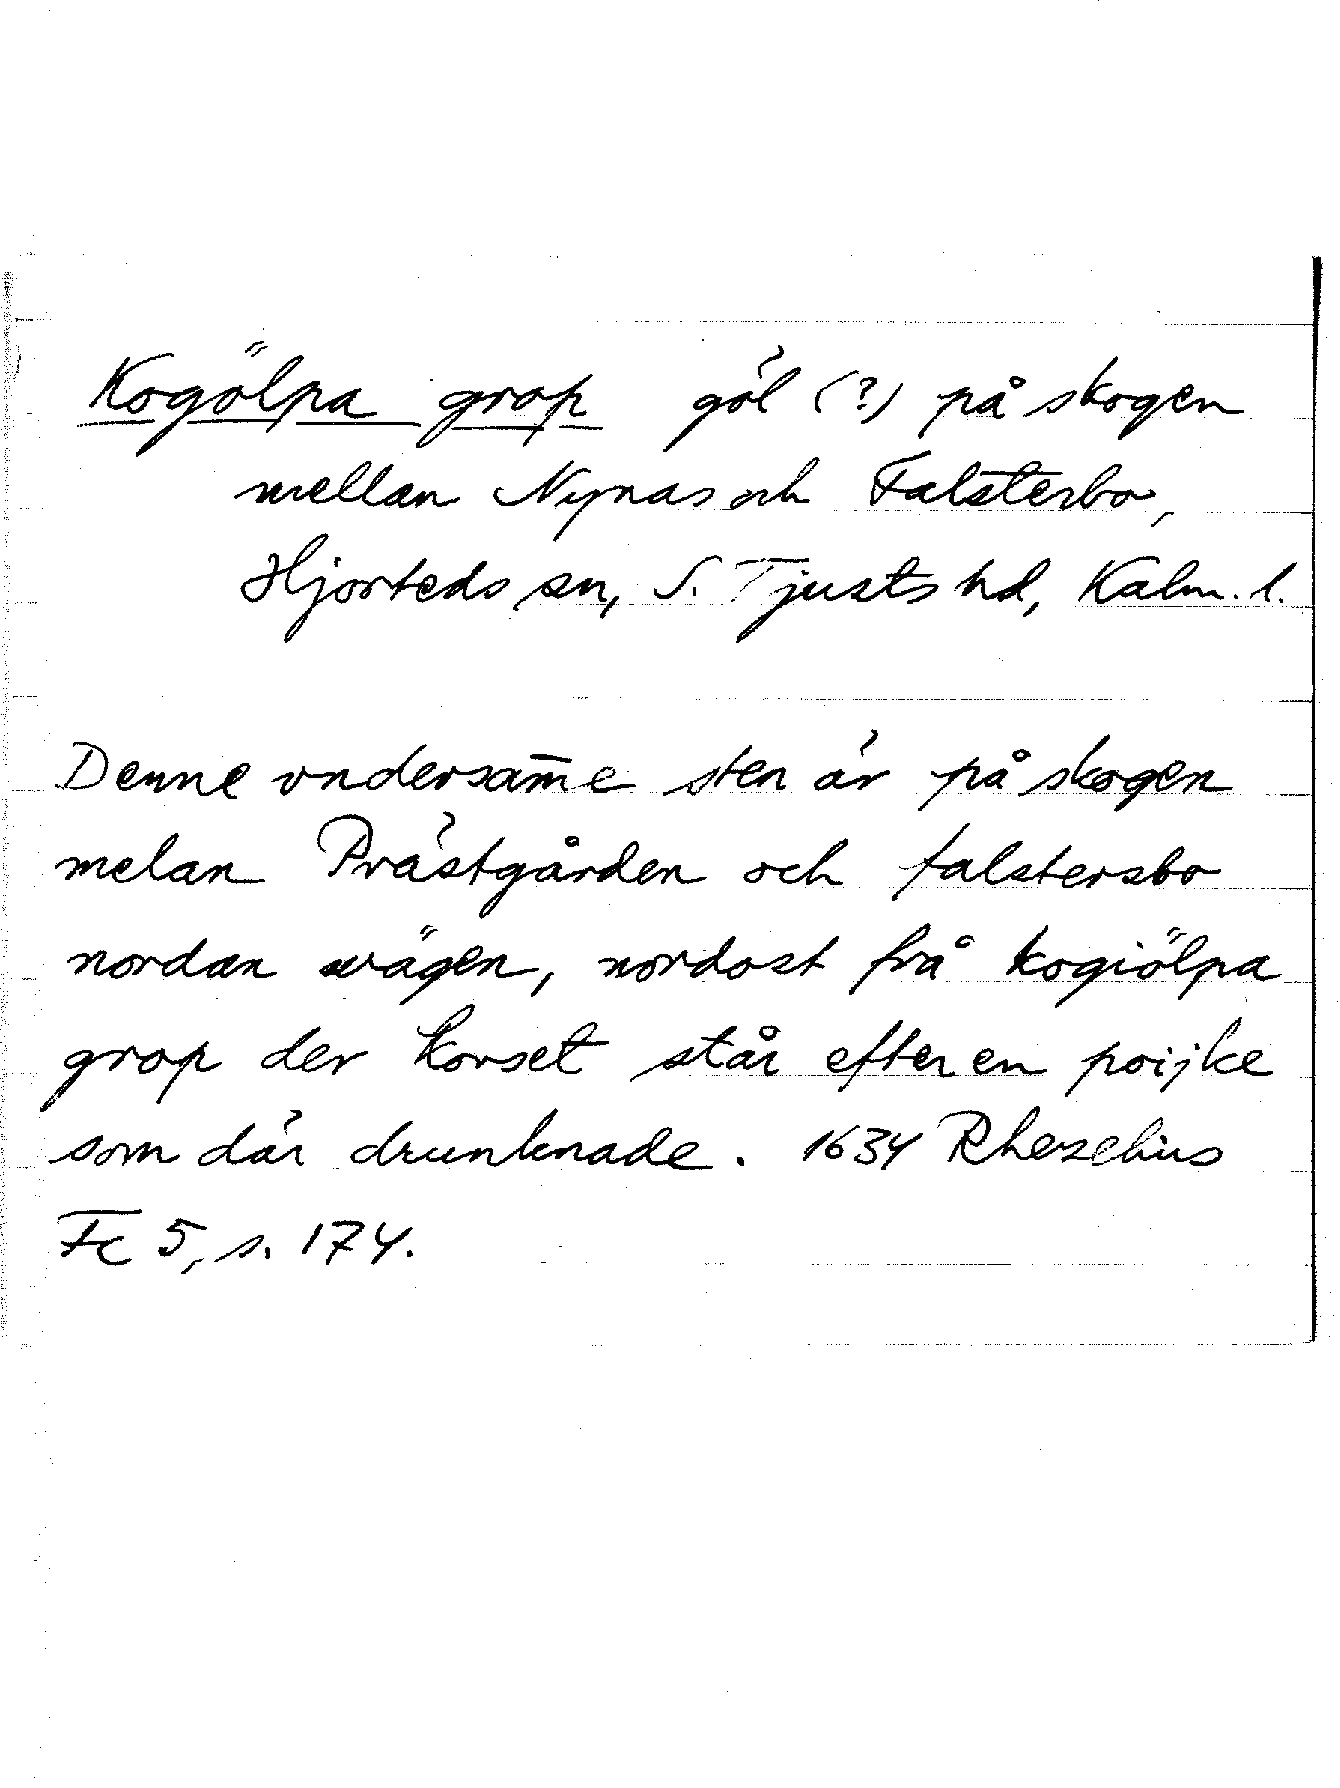 Kogölpa grop göl (?) på skogen
mellan Nynas och Falsterbo,
Hjorteds sn, S. Tjusts hd, Kalm. l.
Denne vndersam̄e sten är på skogen
melan Prästgården och falstersbo
nordan wägen, nordost frå kogiölpa
grop der korset står efter en poijke
som där drunknade. 1634 Rhezelius
Fc 5, s. 174.